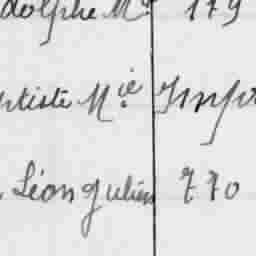 dolphe Me 179
ptiste Mie Impr
Léon Julien 770